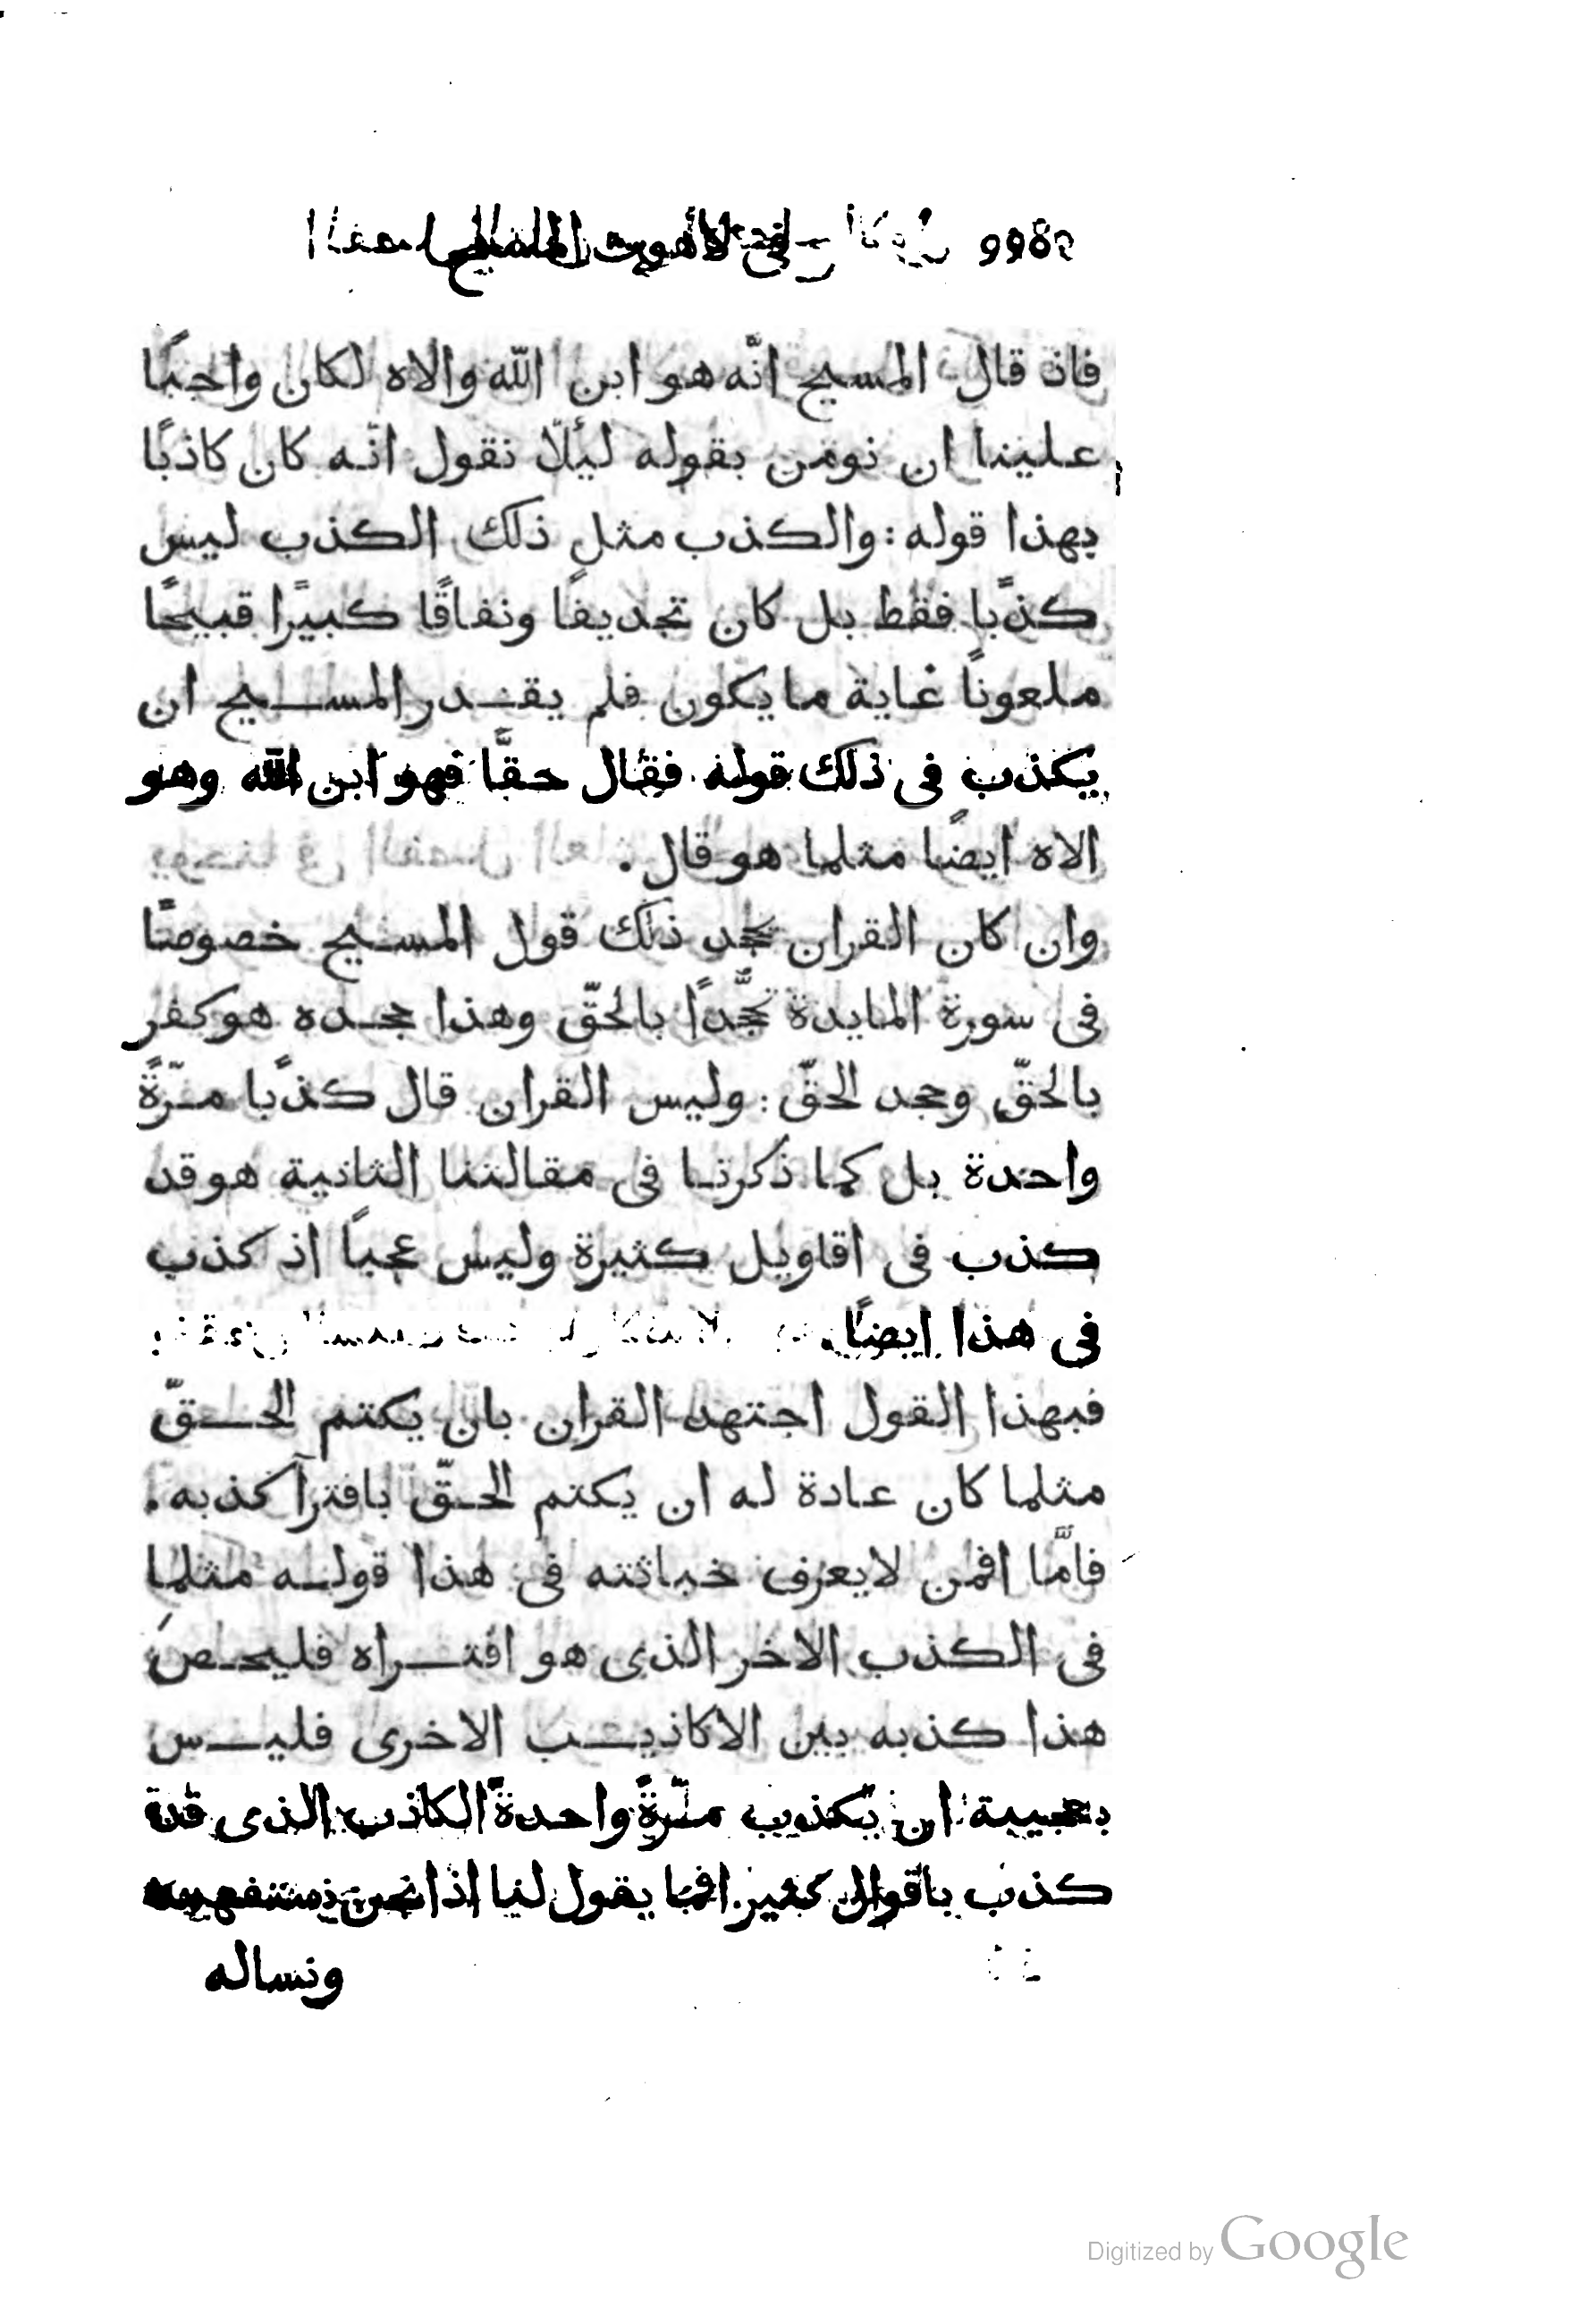 في لاهوت المسيح
فان قال المسيح انّه هو ابن اللّه والاه لكان واجبًا
علينا ان نومن بقوله ليُلّا نقول انّه كان كاذبًا
بهذا قوله: والكذب مثل ذلك الكذب ليس
كذبًا فقط بل كان تجديفًا ونفاقًا كبيرًا قبيحًا
ملعونًا غاية ما يكون فلم يقدر المسيح ان
يكذب في ذلك قوله فقال حقًّا فهو ابن اللّه وهو
الاه ايضًا مثلما هو قال.
وان كان القران يجحد ذلك قول المسيح خصوصًا
في سورة المايدة بالحقّ وهذا جحده هو كفر
بالحقّ وجحد الحقّ: وليس القران قال كذبًا مرّةً
واحدة بل كما ذكرنا في مقالتنا الثانية هو قد
كذب في اقاويل كثيرة وليس عجبًا اذ كذب
في هذا ايضًا.
فبهذا القول اجتهد القران بان يكتم الحقّ
مثلما كان عادة له ان يكتم الحقّ بافترآ كذبه.
فامّا افمن لا يعرف خباثته في هذا قوله مثلما
في الكذب الاخر الذي هو افتراه فليحص
هذا كذبه بين الاكاذيب الاخرى فليس
بعجيبة ان يكذب مرّةً واحدةً الكاذب الذي قد
كذب باقوال كثير. افما يقول لنا اذا نحن نستفهمه
ونساله
Digitized by Google